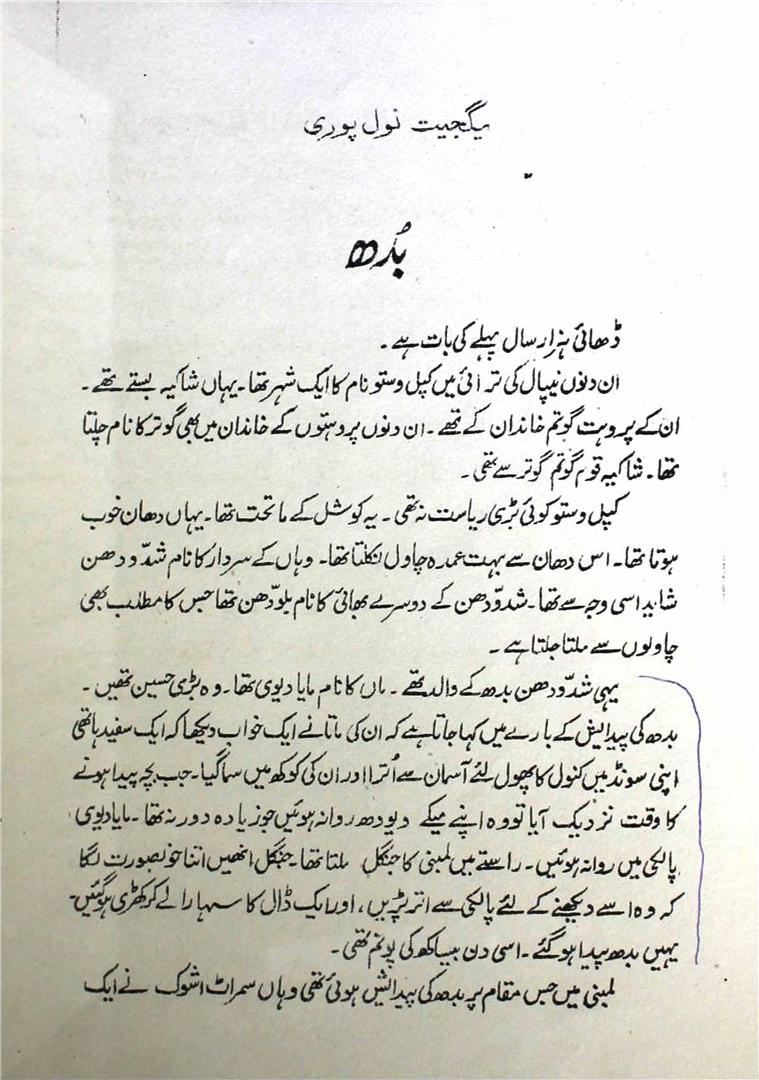 یگجیت نول پوری
بُدھ
ڈھائی ہزار سال پہلے کی بات ہے ۔
ان دنوں نیپال کی ترائی میں کپل وستو نام کا ایک شہر تھا ۔ یہاں شاکیہ بستے تھے ۔
ان کے پروہت گوتم خاندان کے تھے ۔ ان دنوں پروہتوں کے خاندان میں بھی گوتر کا نام چلتا
تھا ۔ شاکیہ قوم گوتم گوتر سے تھی ۔
کپل وستو کوئی بڑی ریاست نہ تھی ۔ یہ کوشل کے ماتحت تھا ۔ یہاں دھان خوب
ہوتا تھا ۔ اس دھان سے بہت عمدہ چاول نکلتا تھا ۔ وہاں کے سردار کا نام شدّودھن
شاید اسی وجہ سے تھا ۔ شدوّدھن کے دوسرے بھائی کا نام بلودّھن تھا جس کا مطلب بھی
چاولوں سے ملتا جلتا ہے ۔
یہی شدّودھن بدھ کے والد تھے ۔ ماں کا نام مایا دیوی تھا ۔ وہ بڑی حسین تھیں ۔
بدھ کی پیدایش کے بارے میں کہا جاتا ہے کہ ان کی ماتا نے ایک خواب دیکھا کہ ایک سفید ہاتھی
اپنی سونڈ میں کنول کا پھول لئے آسمان سے اُترا اور ان کی کوکھ میں سما گیا ۔ جب بچہ پیدا ہونے
کا وقت نزدیک آیا تو وہ اپنے میکے دیودھ روانہ ہوئیں جو زیادہ دور نہ تھا ۔ مایا دیوی
پالکی میں روانہ ہوئیں ۔ راستے میں لمبنی کا جنگل ملتا تھا ۔ جنگل انھیں اتنا خوبصورت لگا
کہ وہ اسے دیکھنے کے لئے پالکی سے اتر پڑیں ، اور ایک ڈال کا سہارا لے کر کھڑی ہوگئیں ۔
یہیں بدھ پیدا ہو گئے ۔ اسی دن بیساکھ کی پونم تھی ۔
لمبنی میں جس مقام پر بدھ کی پیدائش ہوئی تھی وہاں سمراٹ اشوک نے ایک